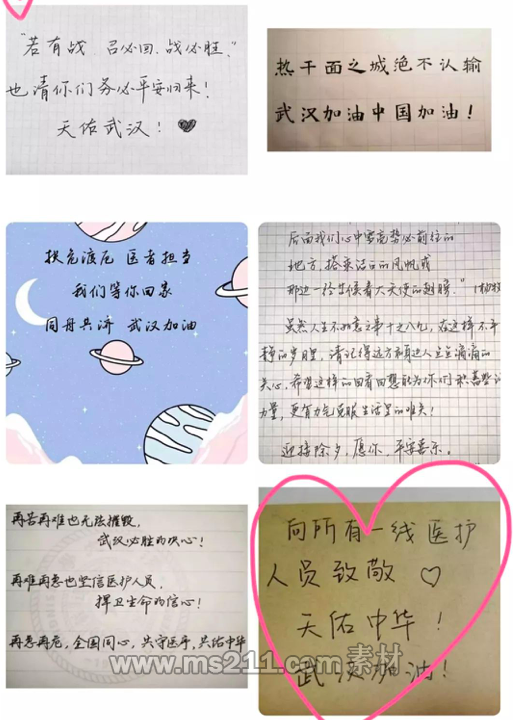 “若有战 召必回、战必胜，”
也请你们务必平安归来！
天佑武汉！
热干面之城绝不认输
武汉加油中国加油！
扶危渡厄 医者担当
我们等你回家
同舟共济 武汉加油
后面我们心中要高势必前往的
地方，搭乘洁白的风帆或
那边一约生候着大天使的翅膀。”
虽然人生不如意之事十之八九，在这样不平
静的岁月里，请记得远方有身边人点点滴滴的
关心，希望这样的回首回想能为你们积蓄些许
力量，更有力气克服生活里的难关！
迎接除夕，愿你，平安喜乐。
再苦再难也无法摧毁，
武汉必胜的决心！
再难再悬也坚信医护人员，
捍卫生命的信心！
再悬再危，全国同心，共守医手，共佑中华
向所有一线医护
人员致敬
天佑中华！
武汉加油！
www.ms211.com 素材